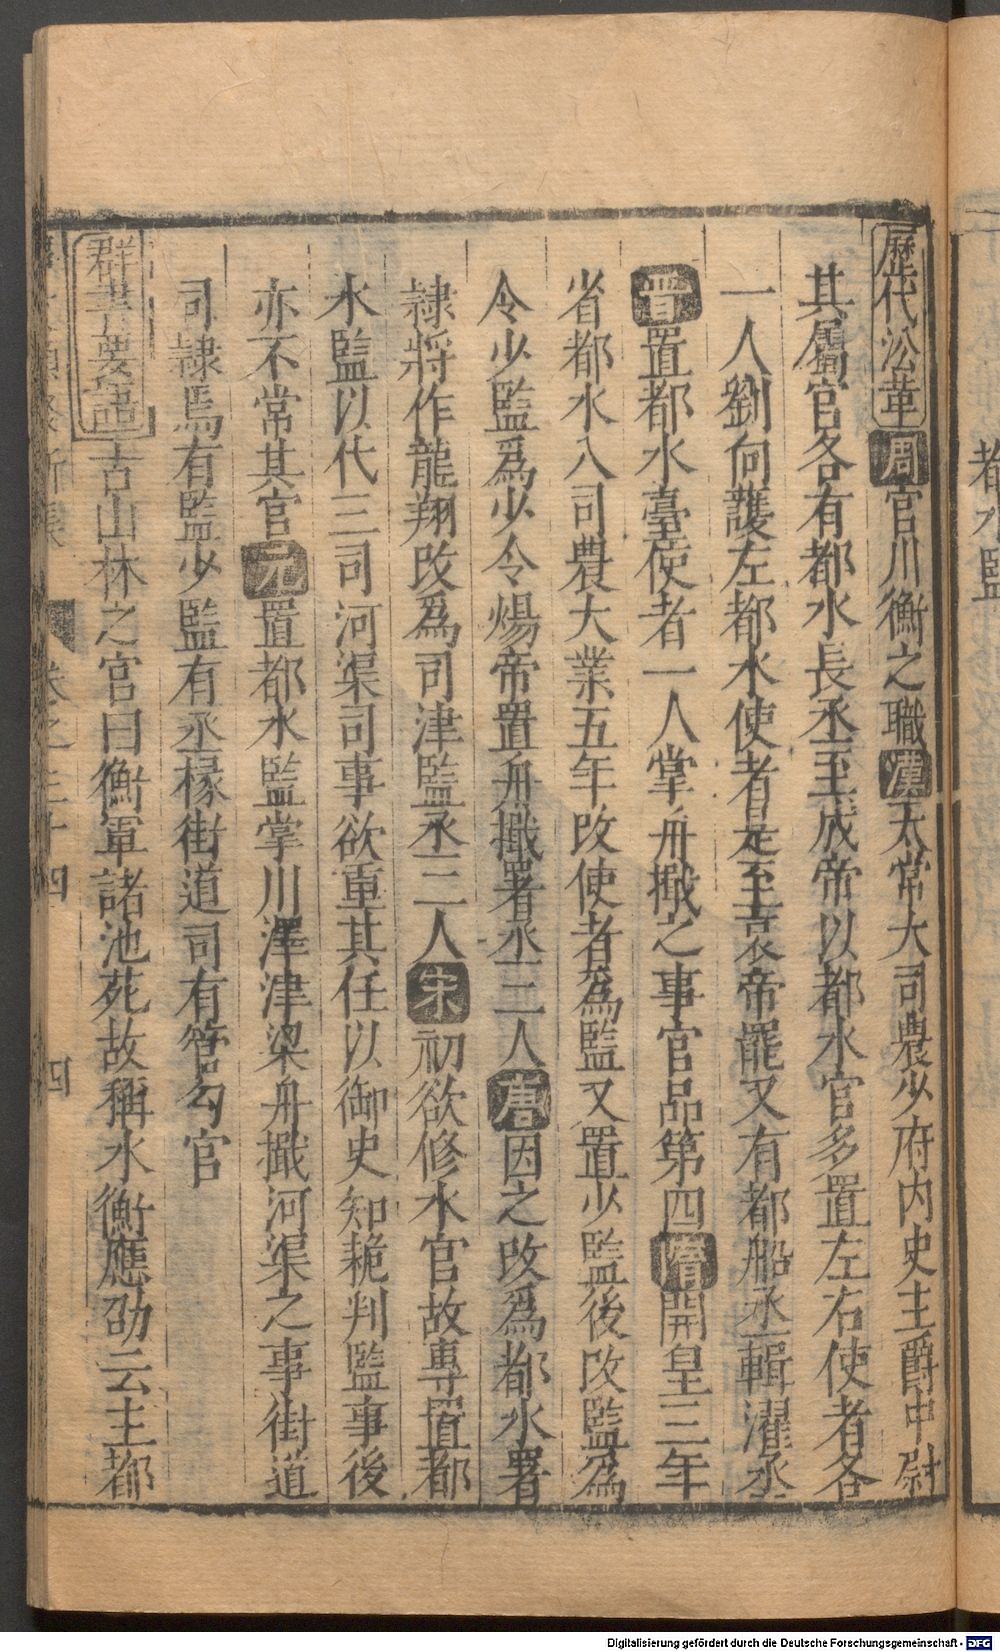 都水監
歷代沿革周官川衡之職漢太常大司農少府內史主爵中尉
其屬官各有都水長丞至成帝以都水官多置左右使者各
一人劉向護左都水使者是至哀帝罷又有都船丞輯濯丞
晉置都水臺使者一人掌舟檝之事官品第四隋開皇三年
省都水入司農大業五年改使者為監又置少監後改監為
令少監爲少令煬帝置舟檝署丞二人唐因之改爲都水署
隷將作龍翔改爲司津監丞三人宋初欲修水官故專置都
水監以代三司河渠司事欲重其任以御史知耗判監事後
亦不常其官元置都水監掌川澤津梁舟檝河渠之事街道
司隷焉有監少監有丞椽街道司有管勾官
群書要語古山林之官曰衡軍諸池苑故稱水衡應劭云主都
卷之三十四 四
Digitalisierung gefördert durch die Deutsche Forschungsgemeinschaft - DFG